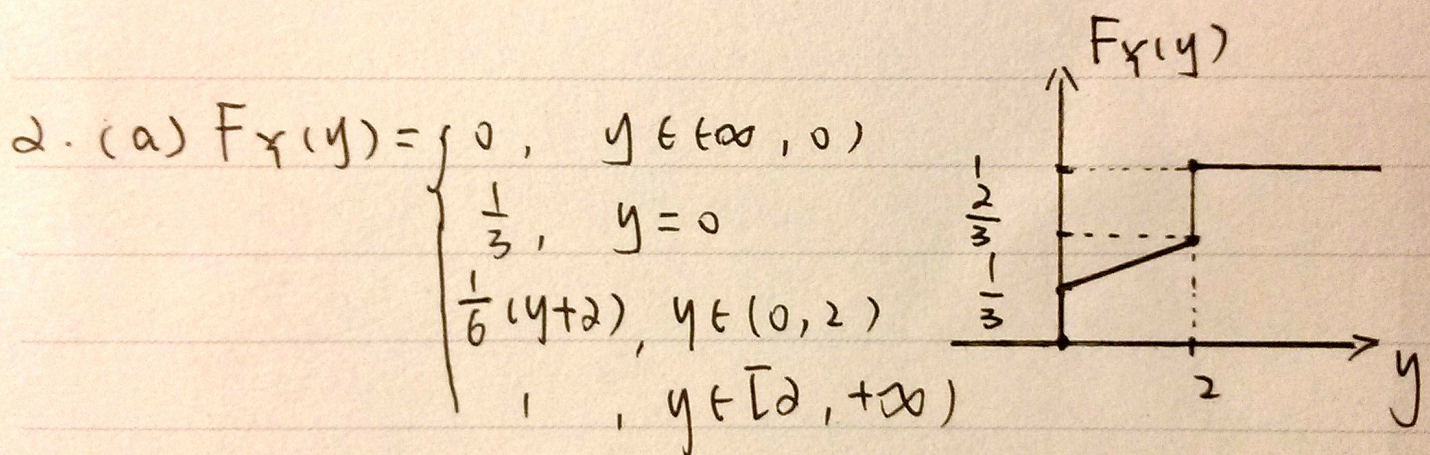 2. (a) F_Y(y) = { 0, y ∈ (-∞, 0)
1/3, y = 0
1/6 (y+2), y ∈ (0, 2)
1, y ∈ [2, +∞)
F_Y(y)
1
2/3
1/3
2
y